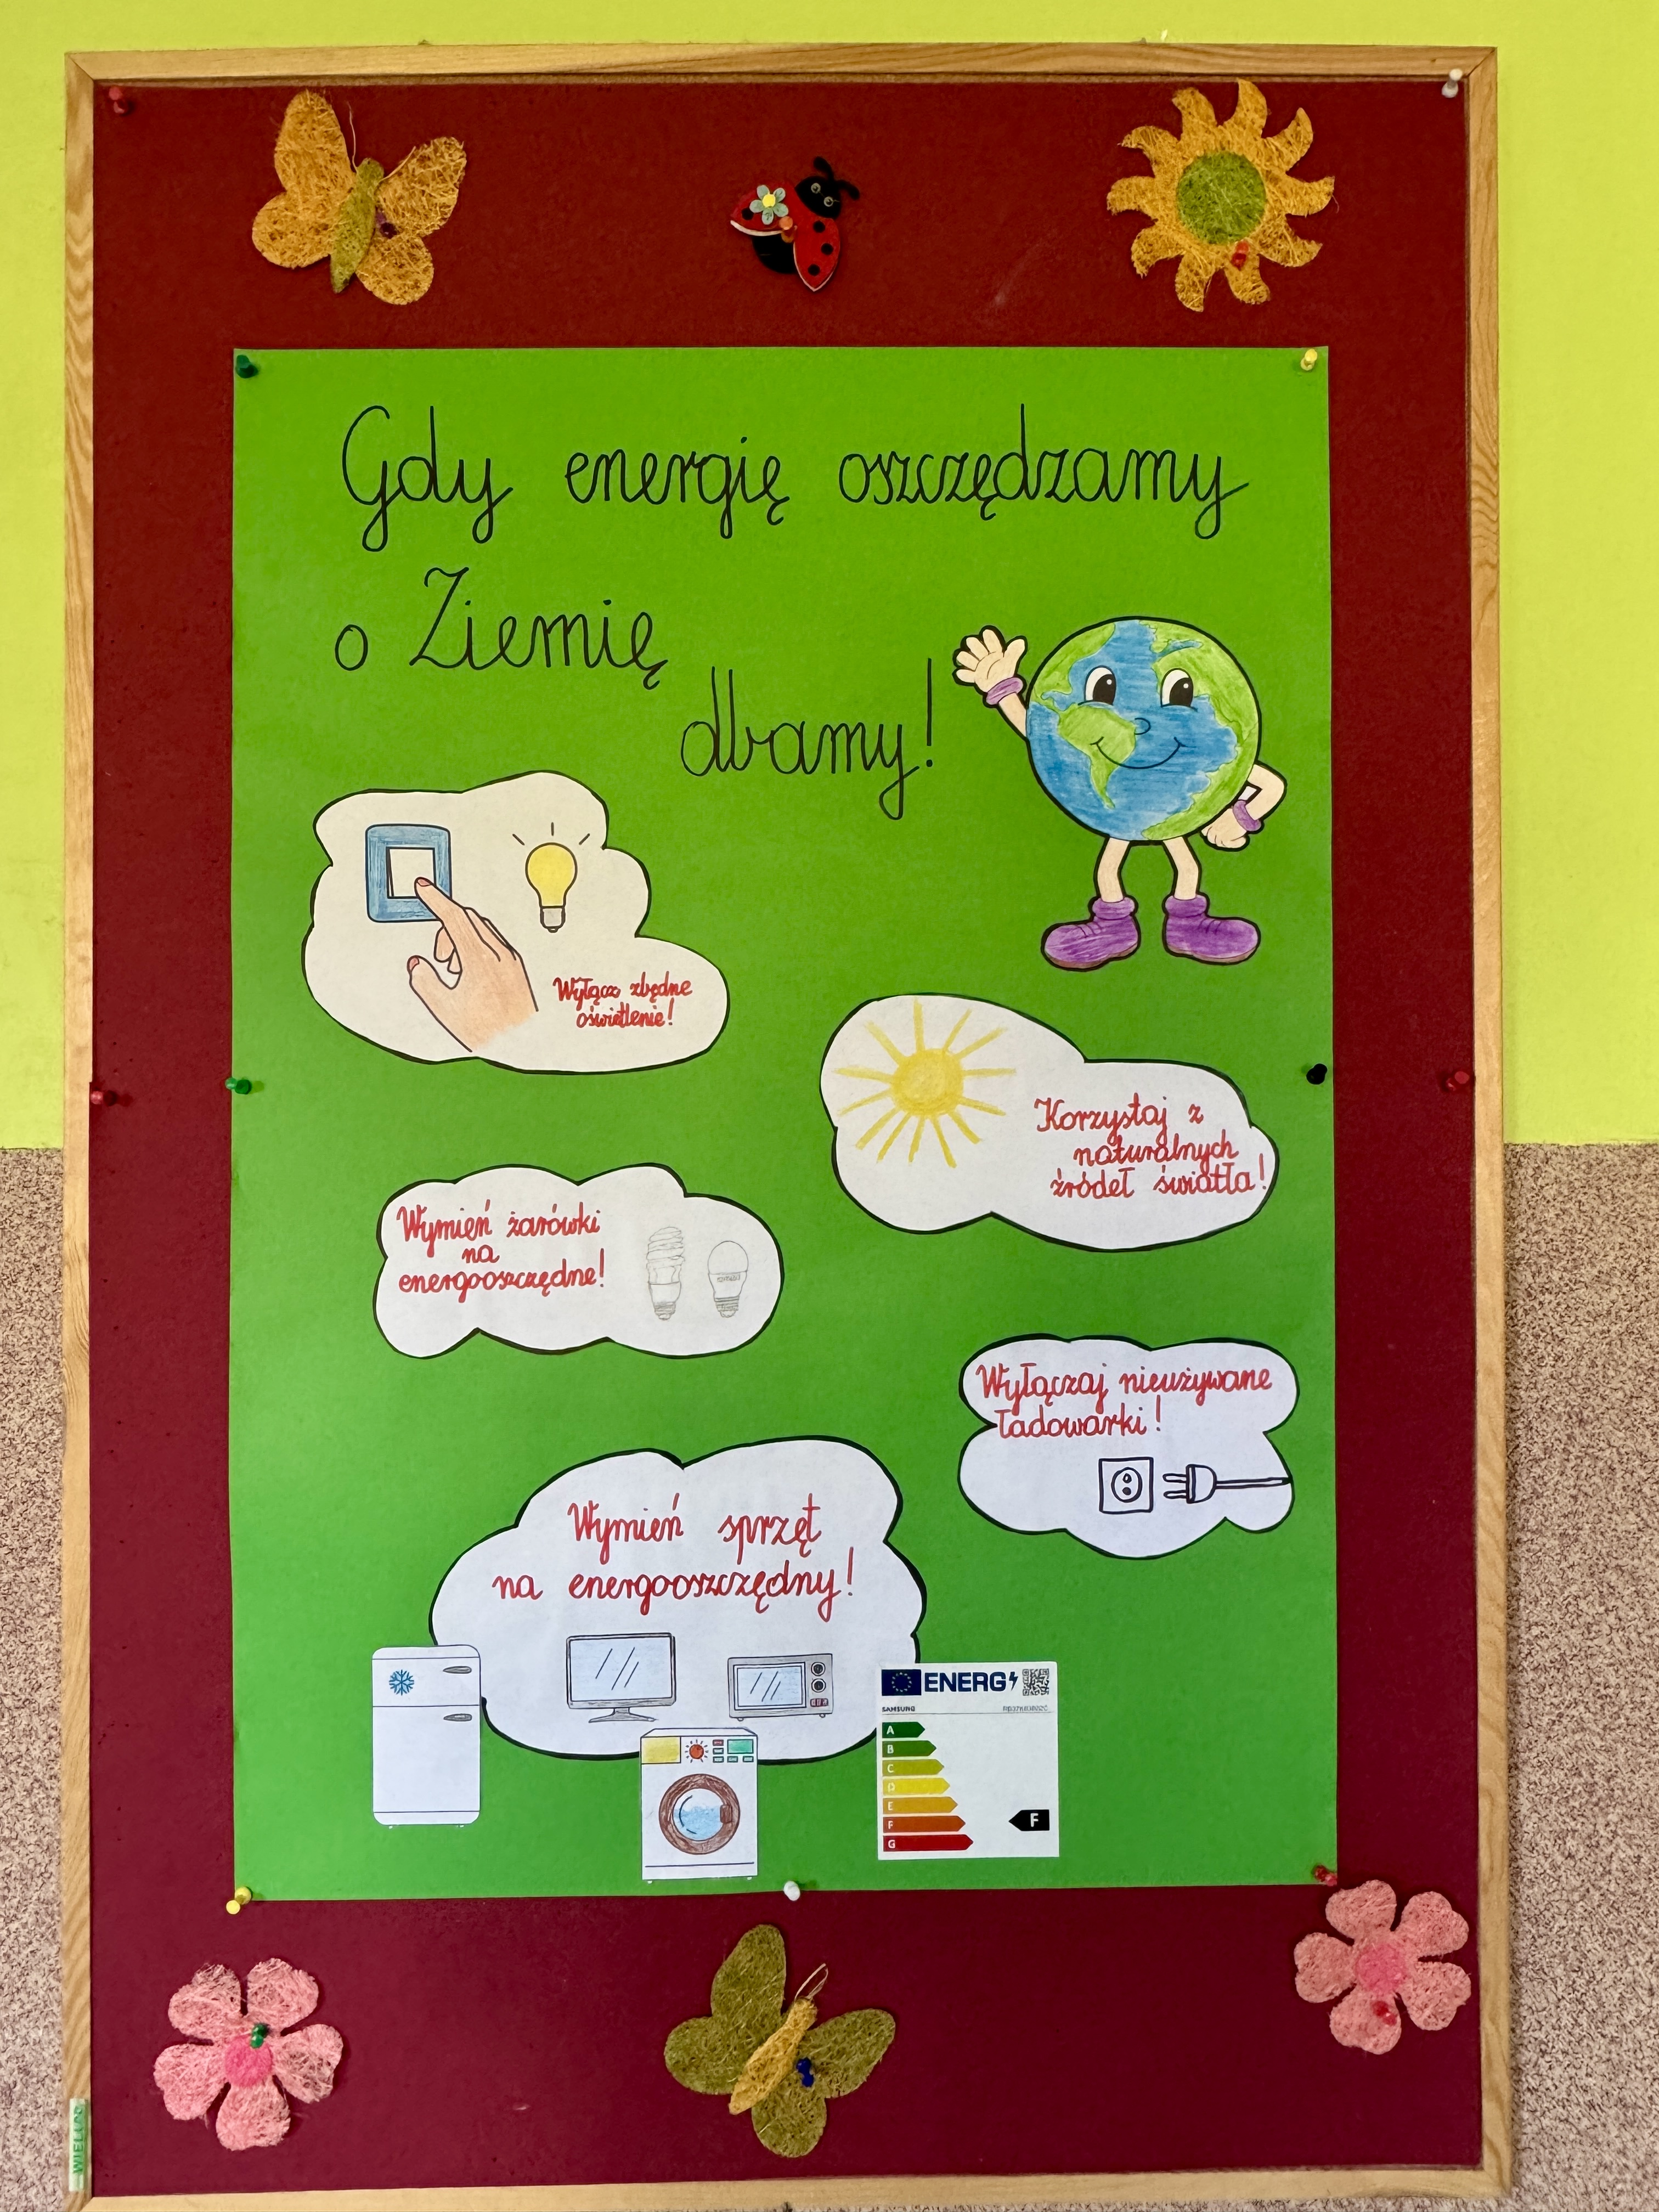 Gdy energię oszczędzamy
o Ziemię
dbamy!
Wyłącz zbędne
oświetlenie!
Korzystaj z
naturalnych
źródeł światła!
Wymień żarówki
na
energooszczędne!
Wyłączaj nieużywane
ładowarki!
Wymień sprzęt
na energooszczędny!
ENERG
SAMSUNG
A
B
C
D
E
F
F
G
WIELAND